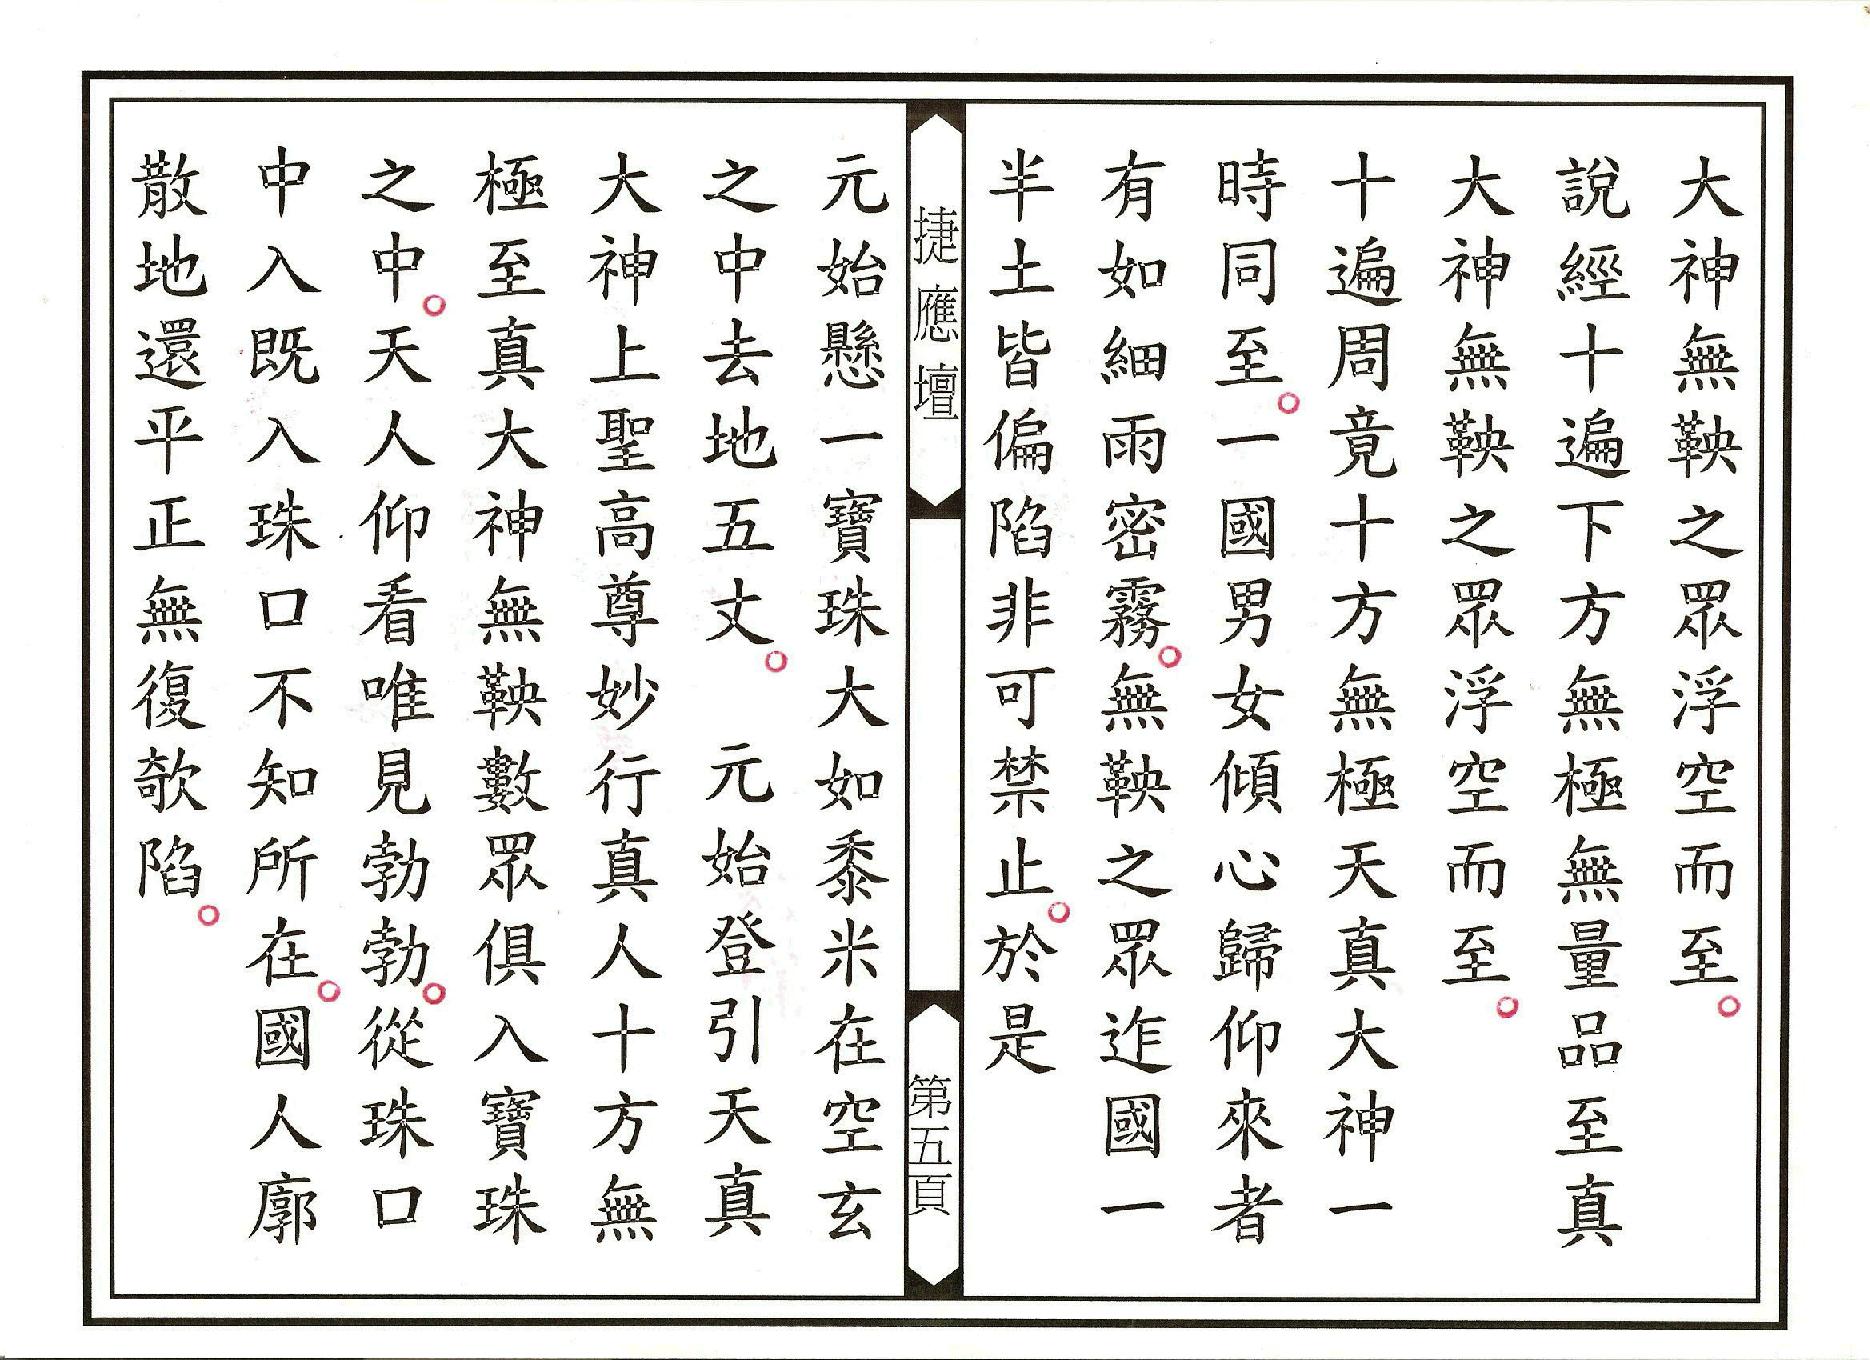 大神無鞅之眾浮空而至
說經十遍下方無極無量品至真
大神無鞅之眾浮空而至
十遍周竟十方無極天真大神一
時同至一國男女傾心歸仰來者
有如細雨密霧無鞅之眾迮國一
半土皆偏陷非可禁止於是
捷應壇
第五頁
元始懸一寶珠大如黍米在空玄
之中去地五丈 元始登引天真
大神上聖高尊妙行真人十方無
極至真大神無鞅數眾俱入寶珠
之中天人仰看唯見勃勃從珠口
中入既入珠口不知所在國人廓
散地還平正無復欹陷